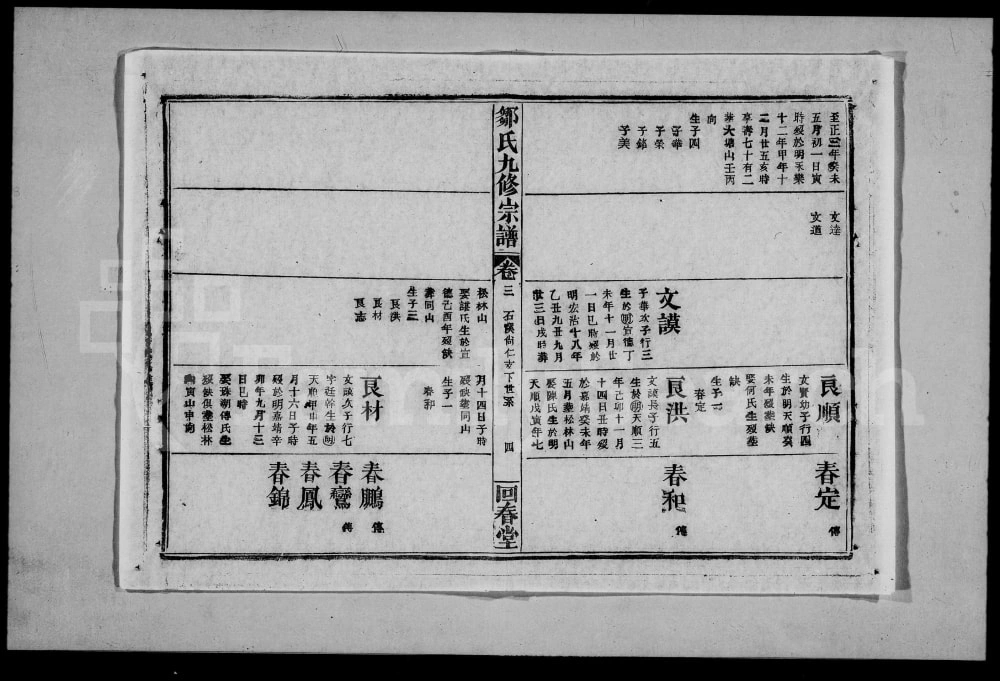 至正三年癸未
五月初一日寅
時歿於明永樂
十二年甲午十
二月廿五亥時
享壽七十有二
葬大塘山壬丙
向
生子四
子華
子榮
子銘
子美
文達
文道
文謨
子華次子行三
生於明宣德丁
未年十一月廿
一日巳時歿於
明宏治十八年
乙丑九丑九月
廿三日戌時葬
良順
文賢幼子行四
生於明天順癸
未年歿葬缺
娶何氏生歿葬
缺
生子一
春定
良洪
文謨長子行五
生於明天順三
年己卯十一月
十四日丑時歿
於嘉靖癸未年
五月葬松林山
娶陳氏生於明
天順戊寅年七
春定
傳
春和
傳
鄒氏九修宗譜
卷三
石溪尚仁支下世系
四
回春堂
松林山
娶諶氏生於宣
德己酉年歿缺
葬同山
生子三
良洪
良材
良志
月十四日子時
歿缺葬同山
生子一
春和
良材
文謨次子行七
字廷幹生於明
天順甲申年五
月十六日子時
歿於明嘉靖辛
卯年九月十三
日巳時
娶珠湖傅氏生
歿缺俱葬松林
山寅山申向
春鵬
傳
春鸞
傳
春鳳
春錦